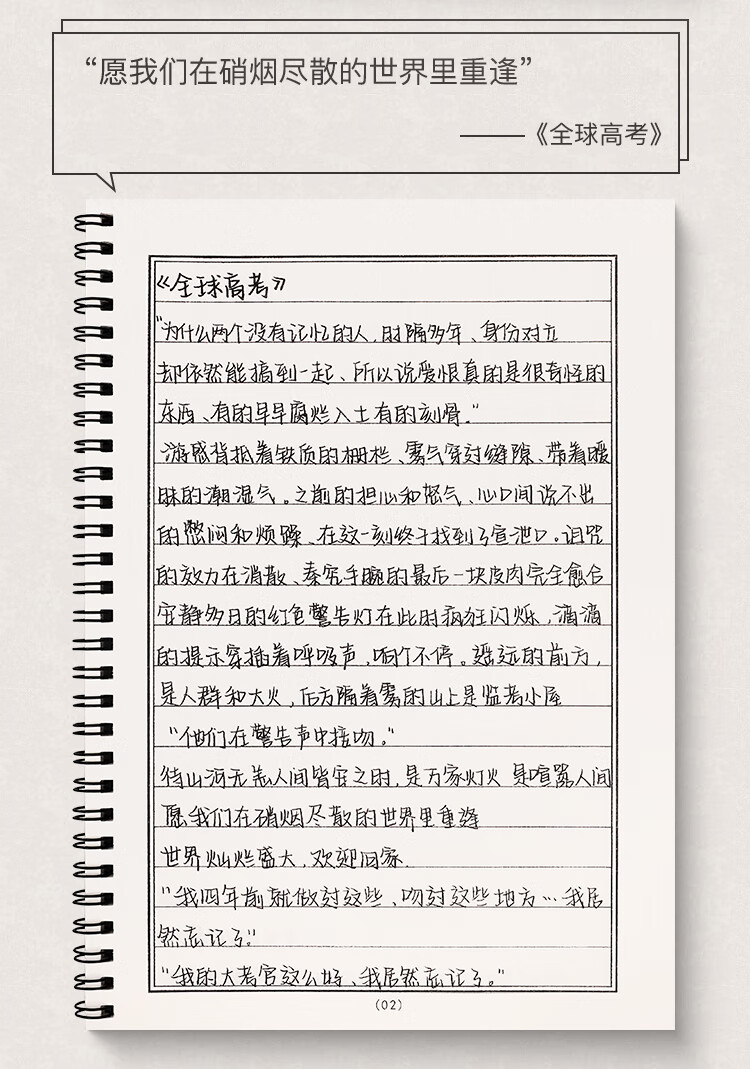 “愿我们在硝烟尽散的世界里重逢”
——《全球高考》
《全球高考》
“为什么两个没有记忆的人,时隔多年、身份对立
却依然能搞到一起、所以说爱恨真的是很奇怪的
东西、有的早早腐烂入土有的刻骨.”
游惑背抵着铁质的栅栏、雾气穿过缝隙、带着暧
昧的潮湿气。之前的担心和怒气、心口间说不出
的憋闷和烦躁、在这一刻终于找到了宣泄口。诅咒
的效力在消散、秦究手腕的最后一块皮肉完全愈合
安静多日的红色警告灯在此时疯狂闪烁,滴滴
的提示穿插着呼吸声,响个不停。遥远的前方,
是人群和大火,后方隔着雾的山上是监考小屋
“他们在警告声中接吻.”
待山河无恙人间皆安之时,是万家灯火 是喧嚣人间
愿我们在硝烟尽散的世界里重逢
世界灿烂盛大,欢迎回家.
“我四年前就做过这些、吻过这些地方…我居
然忘记了.”
“我的大考官这么好、我居然忘记了。”
(02)